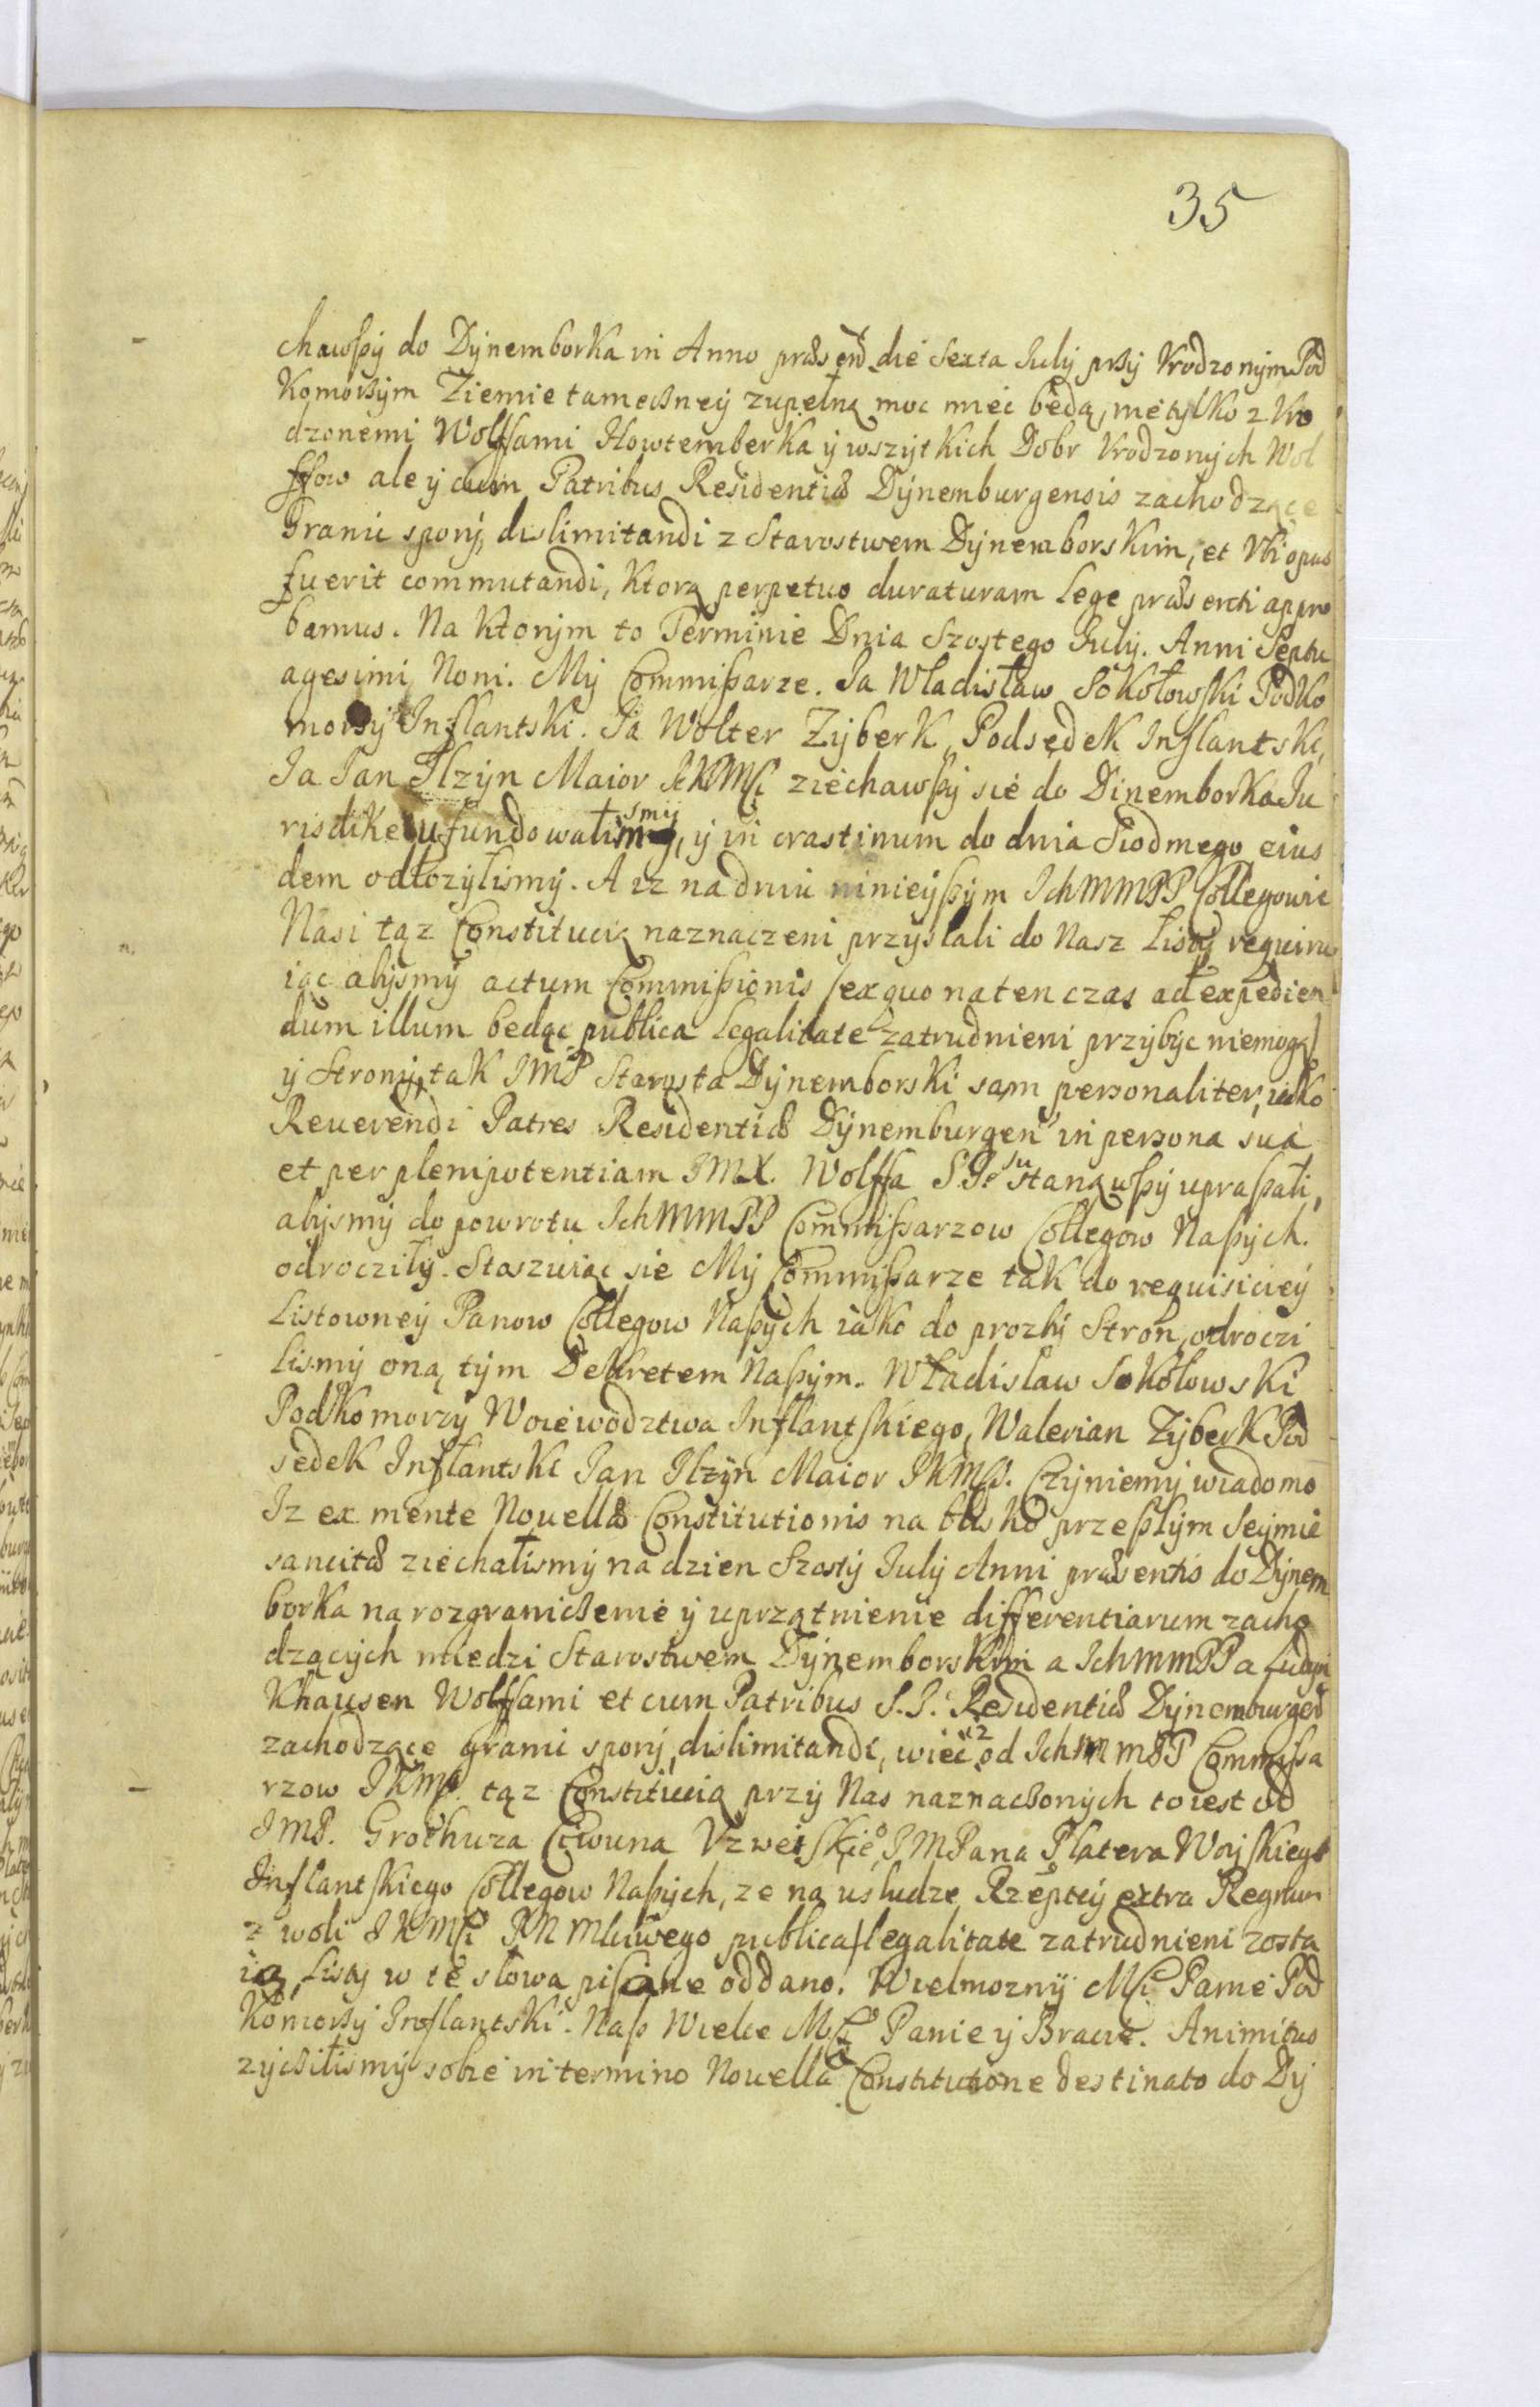 35
chawszy do Dynemborka in Anno præsend die Sexta July przy Vrodzonym Pod
Komorzym Ziemie tameczney zupełną moc mieć będą, nie tylko z Vro
dzonemi Wolffami Howtemberka y wszytkich Dobr Vrodzonych Wol
ffow ale y cum Patribus Residentiæ Dynemburgensis zachodzące
Granic spory, dislimitandi z Starostwem Dynemborskim, et Vbi opus
fuerit commutandi, Ktorą perpetuo duraturam Lege præsenti appro
bamus. Na Ktorym to Terminie Dnia Szostego July. Anni Septu
agesimi Noni. My Commissarze. Ja Wladisław Sokołowski Podko
morzy Inflantski. Ja Wolter Zyberk Podsędek Inflantski,
Ja Jan Ilzyn Maior JKMsci ziechawszy sie do Dinemborka Ju
risdike ufundowalismy, y in crastinum do dnia Siodmego eius
dem odłozylismy. A iz na dniu ninieyszym IchMMPP Collegowie
Nasi tąz Constitucią naznaczeni przyslali do Nasz Listy requiru
iąc abysmy actum Commissionis /ex quo na ten czas ad expedien
dum illum bedąc publica legalitate zatrudnieni przybyc niemogą/
y Strony, tak JMP Starosta Dynemborski sam personaliter, iako
Reuerendi Patres Residentiæ Dynemburgen in persona sua
et per plenipotentiam JMX. Wolffa S.J. stanąwszy upraszali,
abysmy do powrotu IchMMPP Commissarzow Collegow Naszych.
odroczily. Stoszuiąc sie My Commissarze tak do requisiciey
Listowney Panow Collegow Naszych iako do prozby Stron, odroczi
lismy oną tym Dekretem Naszym. Władislaw Sokołowski
Podkomorzy Woiewodztwa Inflantskiego, Walerian Zyberk Pod
sedek Inflantski Jan Ilzyn Maior JKMsci. Czyniemy wiadomo
Iz ex mente Nouellæ Constitutionis na blisko przeszłym Seymie
sancitæ ziechalismy na dzien Szosty July Anni præsentis do Dynem
borka na rozgraniczenie y uprzątnienie differentiarum zacho
dzących miedzi Starostwem Dynemborskim a IchMMPP a Ludyn
Khausen Wolffami et cum Patribus S.J. Residentiæ Dynemburgen
zachodzące granic spory, dislimitandi, wiec iz od IchMMPP Commissa
rzow JKMsci. tąz Constitucią przy Nas naznaczonych to iest od
JMP. Grothuza Ciwuna Vzwetskie, JMPana Platera Woyskiego
Inflantskiego Collegow Naszych, ze na usludze Rzeptey extra Regnum
z woli JKMsci PNMlciwego publica legalitate zatrudnieni zosta
ią, Listy w te słowa pisane oddano. Wielmozny Msci Panie Pod
Komorzy Inflantski. Nasz Wielce Msci Panie y Bracie. Animitus
zyczilismy sobie in termino Nouella Constitutione destinato do Dy